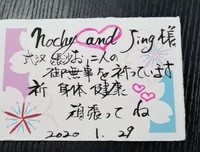 Nochy and Jing 様
武汉 お二人の
御無事を祈っています
祈 身体健康
頑張ってね
2020 1. 29